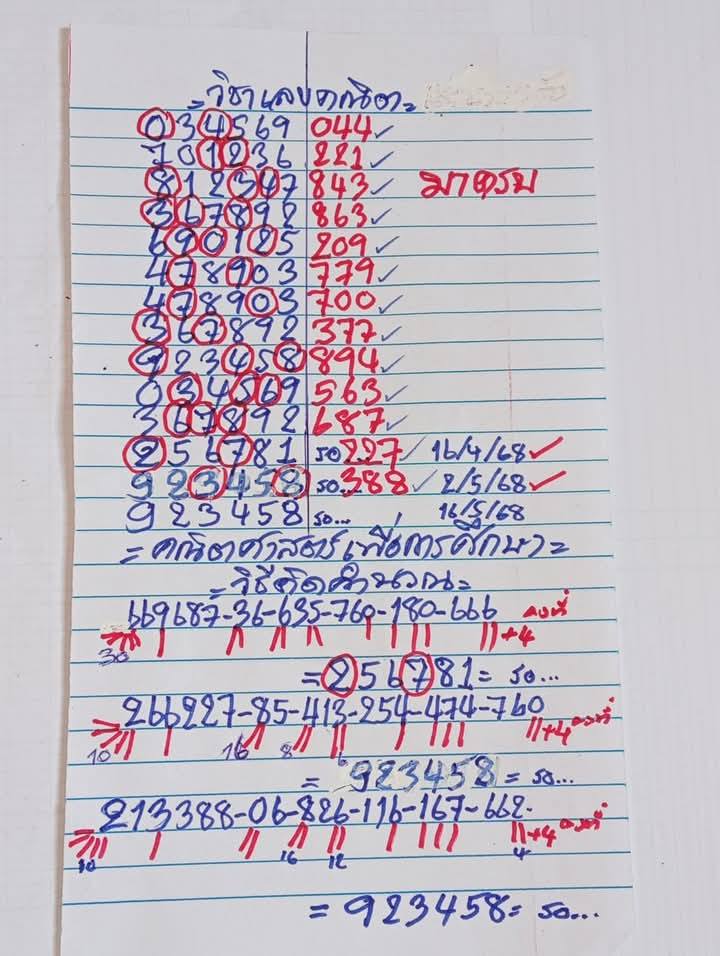 = วิชาเลขคณิต =
034569 044 ✓
701236 221 ✓
812347 843 ✓ มาครบ
367892 863 ✓
690125 209 ✓
478903 779 ✓
478903 700 ✓
367892 377 ✓
923458 894 ✓
034569 563 ✓
367892 687 ✓
256781 รอ 227 ✓ 16/4/68 ✓
923458 รอ... 388 ✓ 2/5/68 ✓
923458 รอ... 16/5/68
= คณิตศาสตร์เพื่อการศึกษา =
= วิธีคิดคำนวณ =
669687-36-635-760-180-666 คงที่
30 +4
= 256781 = รอ...
266227-85-413-254-474-760
10 16 8 +4 คงที่
= 923458 = รอ...
213388-06-826-116-167-662-
10 16 12 4 +4 คงที่
= 923458 = รอ...